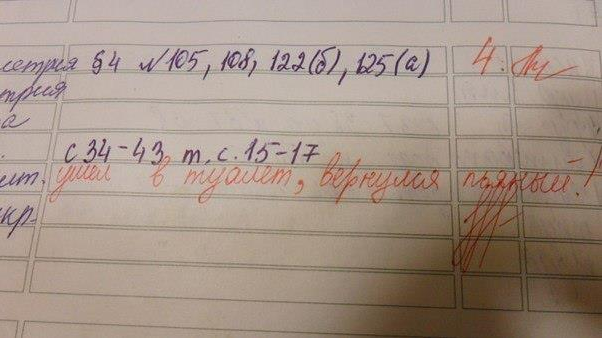 метрия §4 №105, 108, 122(б), 125(а) 4.
трия
а
с 34-43 т. с. 15-17
лит. ушел в туалет, вернулся пьяный!
укр-